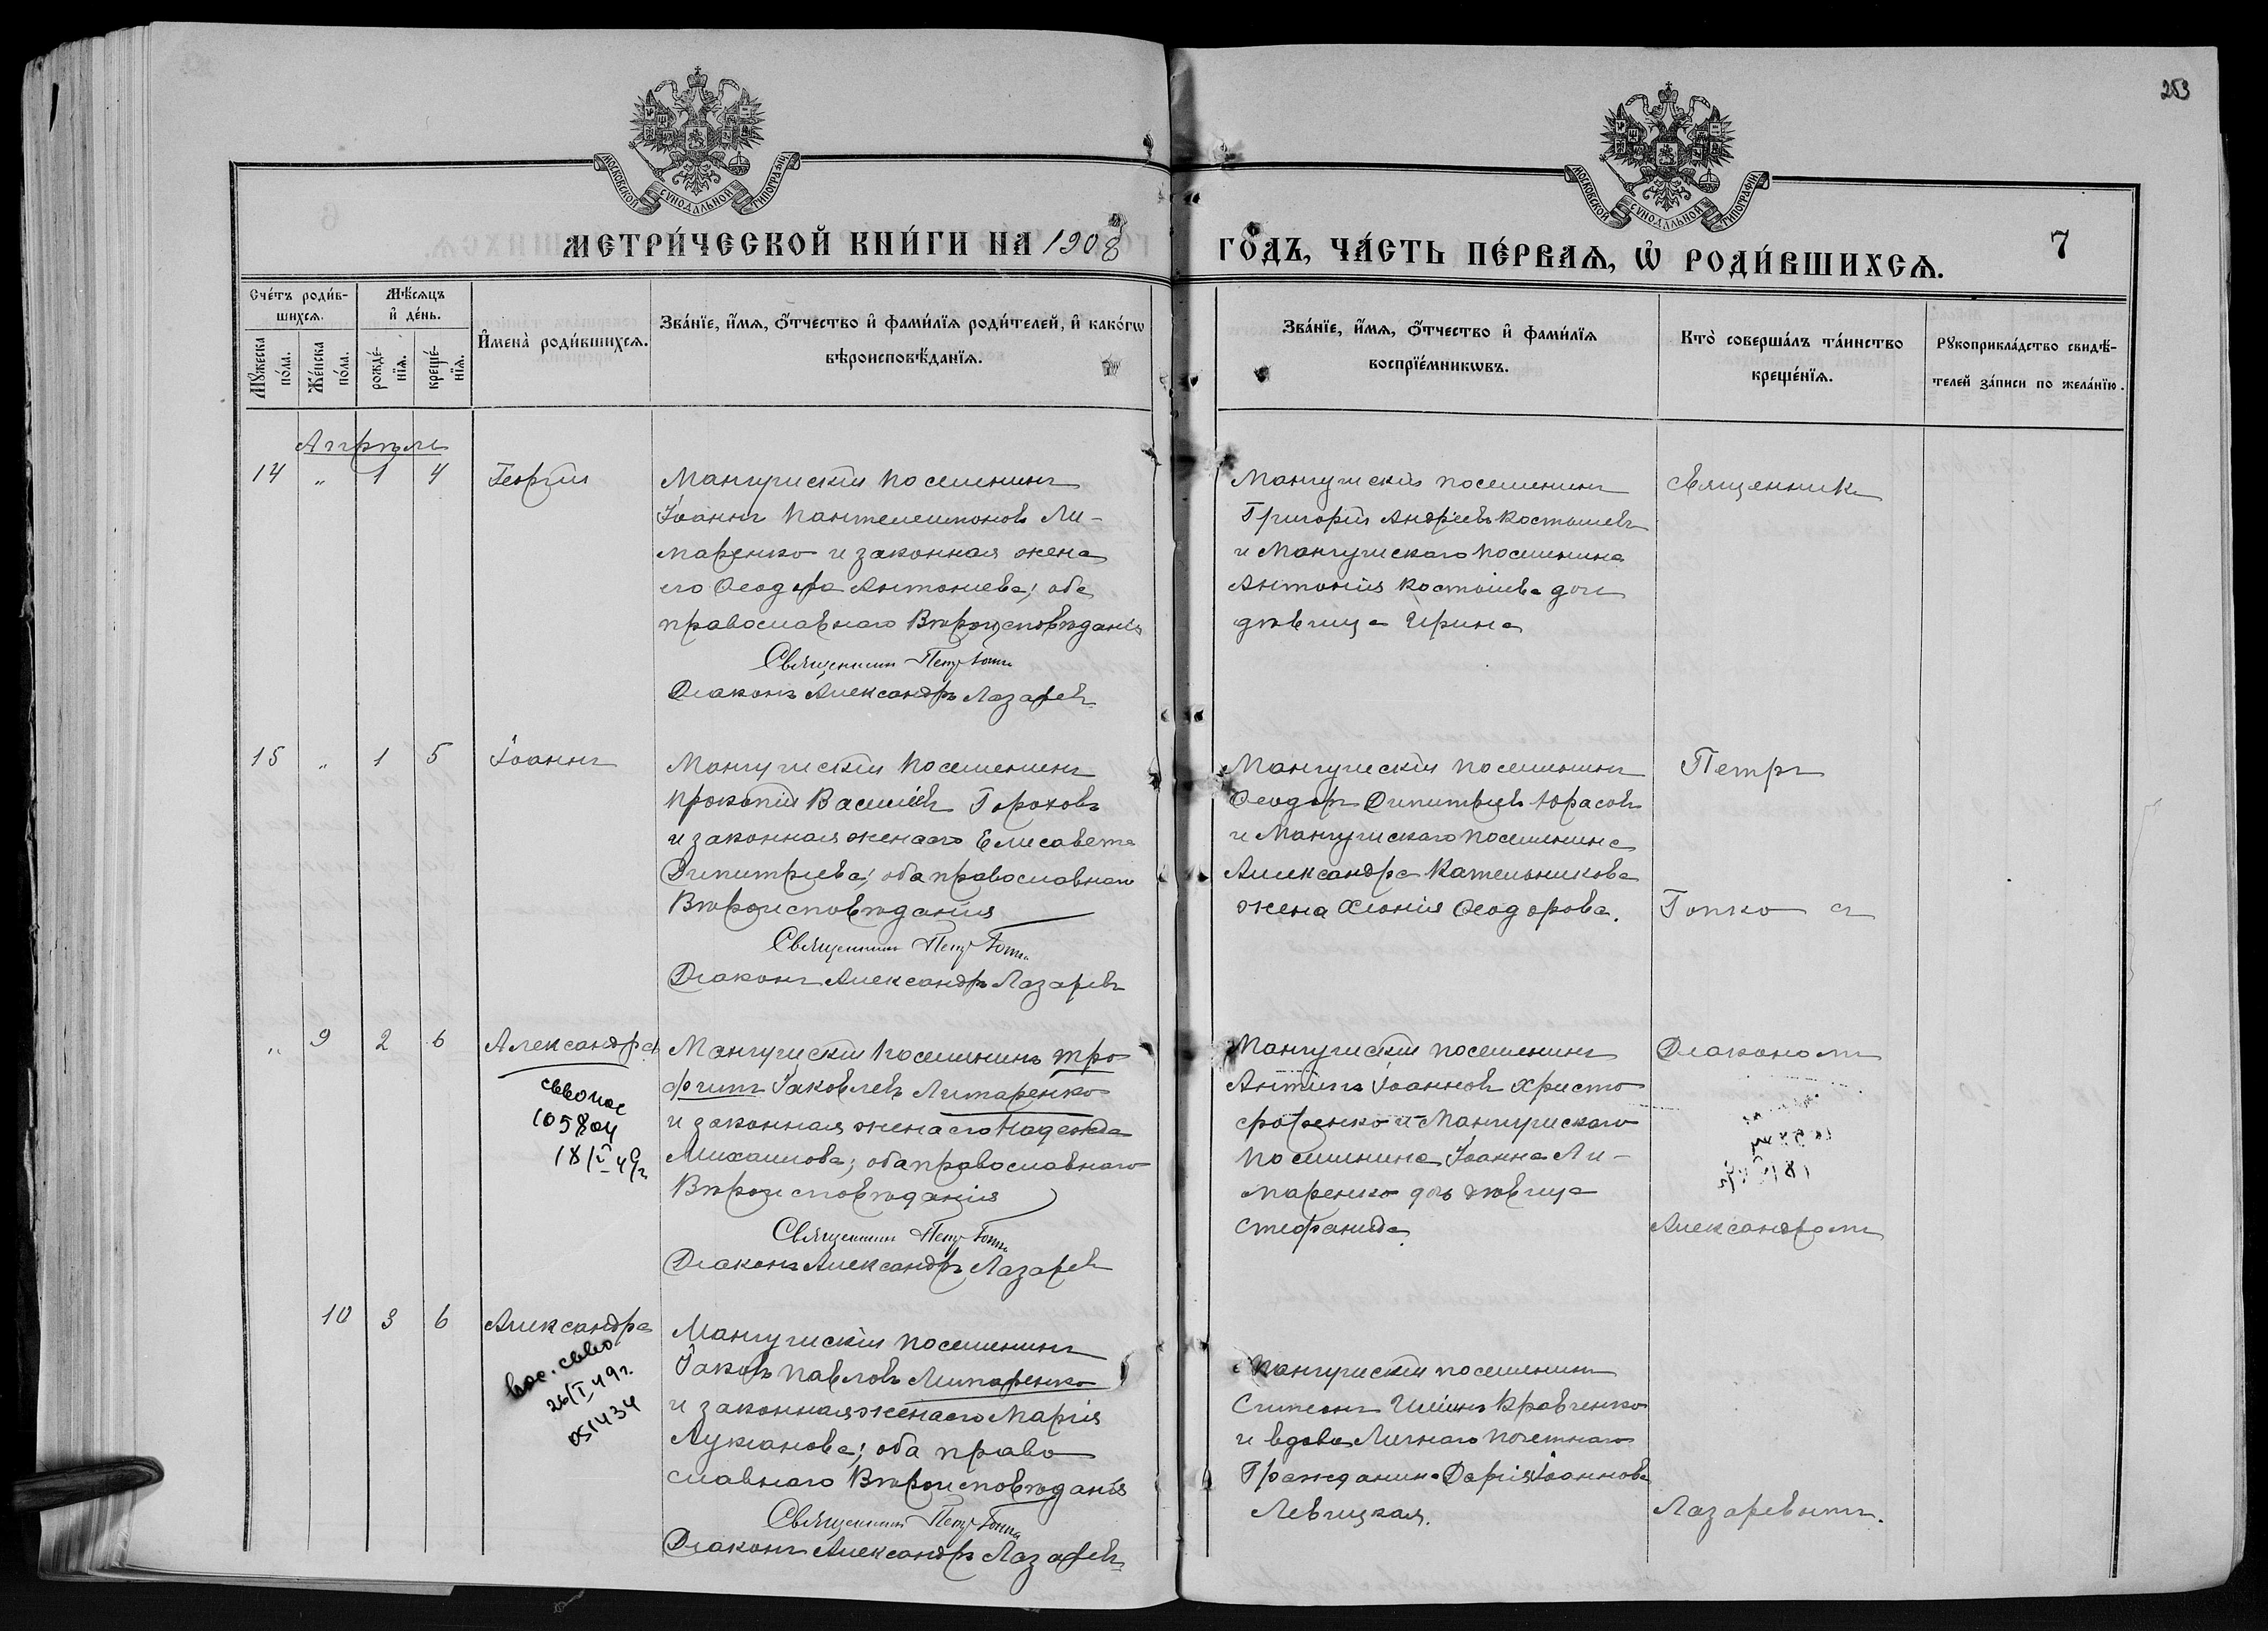 253
МОСКОВСКОЙ СѴНОДАЛЬНОЙ ТИПОГРАФІИ.
МОСКОВСКОЙ СѴНОДАЛЬНОЙ ТИПОГРАФІИ.
МЕТРИ́ЧЕСКОЙ КНИ́ГИ НА 1908
ГО́ДЪ, ЧА́СТЬ ПЕ́РВАѦ, Ѡ РОДИ́ВШИХСѦ.
7
Сче́тъ роди́в-
шихсѧ.
Мꙋ́жеска
по́ла.
Же́нска
по́ла.
Мѣ́сѧцъ
и҆ де́нь.
рожде́-
нїѧ.
креще́-
нїѧ.
И҆мена̀ роди́вшихсѧ.
Зва́нїе, и҆́мѧ, ѻ҆́тчество и҆ фами́лїѧ роди́телей, и҆ како́гѡ
вѣроисповѣ́данїѧ.
Зва́нїе, и҆́мѧ, ѻ҆́тчество и҆ фами́лїѧ
воспрїе́мникѡвъ.
Кто̀ соверша́лъ та́инство
креще́нїѧ.
Рꙋкоприкла́дство свидѣ́-
телей за́писи по жела́нїю.
Апрѣль
14 „ 1 4 Георгій
Мангушскій поселянинъ
Іоаннъ Пантелеимоновъ Ли-
маренко и законная жена
его Ѳеодора Антониева; оба
православнаго Вѣроисповѣданія
Священникъ Петръ Гопко
Діаконъ Александръ Лазаревъ
Мангушскій поселянинъ
Григорій Андреевъ Костошевъ
и Мангушскаго поселянина
Антонія Костошева дочь
дѣвица Ирина
Священникъ
15 „ 1 5 Іоаннъ
Мангушскій поселянинъ
Прокопій Василіевъ Гороховъ
и законная жена его Елисавета
Димитріева; оба православнаго
Вѣроисповѣданія
Священникъ Петръ Гопко
Діаконъ Александръ Лазаревъ
Мангушскій поселянинъ
Ѳеодоръ Димитріевъ Юрасовъ
и Мангушскаго поселянина
Александра Кательникова
жена Хіонія Ѳеодорова.
Петръ
Гопко съ
„ 9 2 6 Александра
свво пос
105804
18/V 49г
Мангушскій поселянинъ Тро-
фимъ Іаковлевъ Лимаренко
и законная жена его Надежда
Михаилова; оба православнаго
Вѣроисповѣданія
Священникъ Петръ Гопко
Діаконъ Александръ Лазаревъ
Мангушскій поселянинъ
Антипъ Іоанновъ Христо
форенко и Мангушскаго
поселянина Іоанна Ли-
маренко дочь дѣвица
Стефанида.
Діакономъ
Александромъ
10 3 6 Александра
вос. свво
26/I 49г.
051434
Мангушскій поселянинъ
Іаковъ Павловъ Лимаренко
и законная жена его Марія
Лукіанова; оба право
славнаго Вѣроисповѣданія
Священникъ Петръ Гопко
Діаконъ Александръ Лазаревъ
Мангушскій поселянинъ
Симеонъ Иліинъ Кравченко
и вдова Личнаго почетнаго
Гражданина Дарія Іоаннова
Левицкая.
Лазаревымъ.